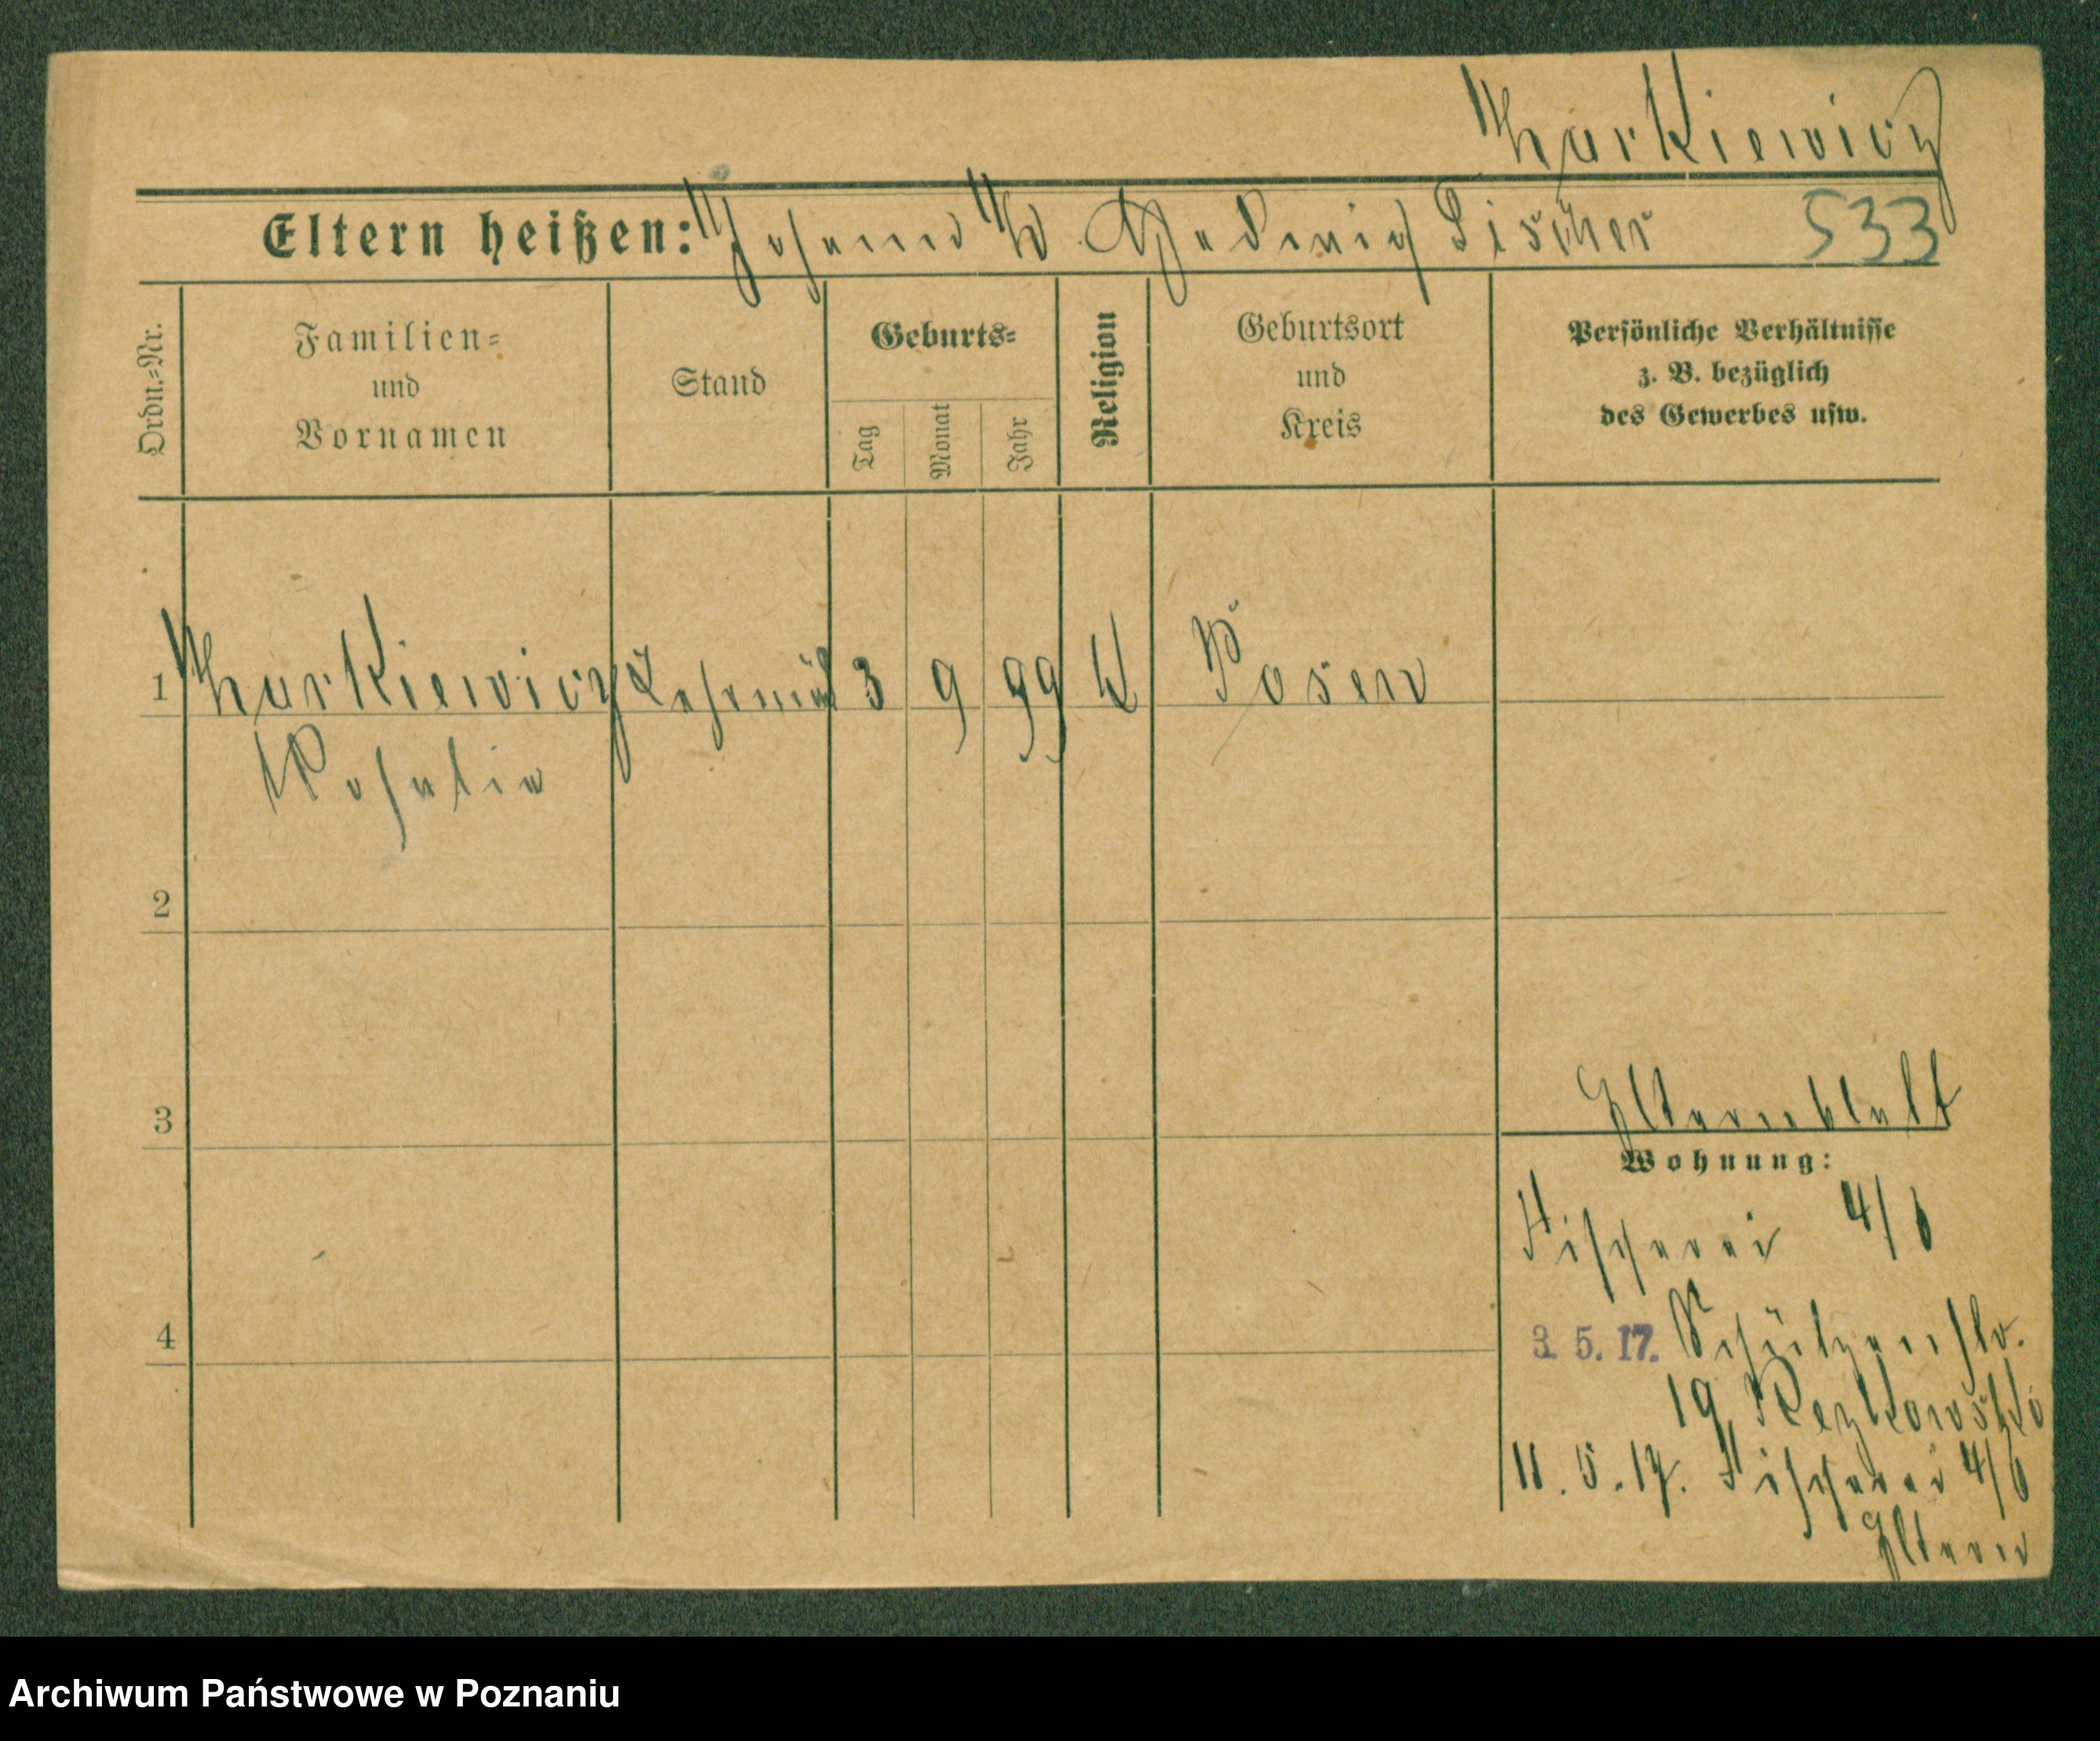 Markiewicz
Eltern heißen: Johann u. Hedwig Fischer 533
Ordn.-Nr.
Familien-
und
Vornamen
Stand
Geburts-
Tag
Monat
Jahr
Religion
Geburtsort
und
Kreis
Persönliche Verhältnisse
z. B. bezüglich
des Gewerbes usw.
1 Markiewicz 3 9 99 k Posen
Rosalie
2
3
Elternblatt
Wohnung:
Fischerei 4/6
4
3. 5. 17. Schützenstr.
19
11. 5. 17. Fischerei 4/6
Eltern
Archiwum Państwowe w Poznaniu